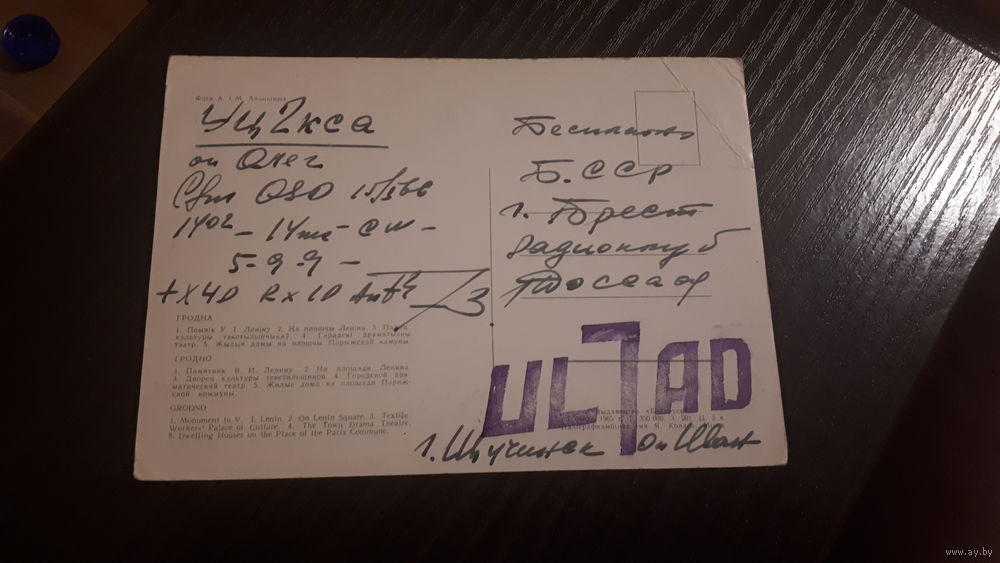 Фота А. і М. Ананьіных
Уц2кса
оп Олег
Cfm QSO 15/3 66
14 02 - 14 mc - CW -
5-9-9 -
+X4D RX 10 Ant
73
ГРОДНА
1. Помнік У. І. Леніну. 2. На плошчы Леніна. 3. Палац
культуры тэкстыльшчыкаў. 4. Гарадскі драматычны
тэатр. 5. Жылыя дамы на плошчы Парыжскай камуны.
ГРОДНО
1. Памятник В. И. Ленину. 2. На площади Ленина.
3. Дворец культуры текстильщиков. 4. Городской дра-
матический театр. 5. Жилые дома на площади Париж-
ской коммуны.
GRODNO
1. Monument to V. I. Lenin. 2. On Lenin Square. 3. Textile
Workers' Palace of Culture. 4. The Town Drama Theatre.
5. Dwelling Houses on the Place of the Paris Commune.
Бесплатно
Б. ССР
г. Брест
Радиоклуб
Досааф
UL7AD
г. Щучинск оп Иван
www.ay.by